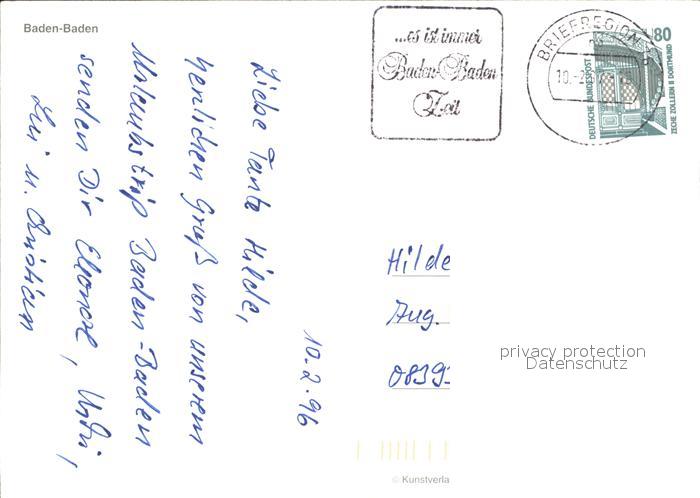 Baden-Baden
...es ist immer
Baden-Baden
Zeit
BRIEFREGION
80
DEUTSCHE BUNDESPOST
ZECHE ZOLLERN II DORTMUND
10.2.96
Liebe Tante Hilde,
herzlichen Gruß von unserem
Baden-Baden
senden Dir Eleonore,
u. Christian
Hilde
Aug.
0839
privacy protection
Datenschutz
© Kunstverla